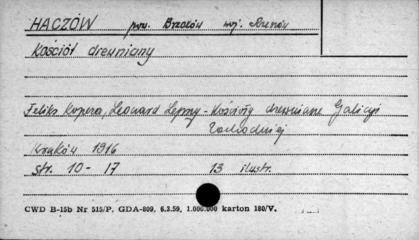 HACZÓW pow. Brzozów woj. Rzeszów
Kościół drewniany
Feliks Kopera, Leonard Lepszy - Kościoły drewniane Galicyi
Zachodniej
Kraków 1916
str. 10 - 17 13 ilustr.
CWD B-15b Nr 515/P. GDA-809, 6.3.59, 1.000.000 karton 180/V.